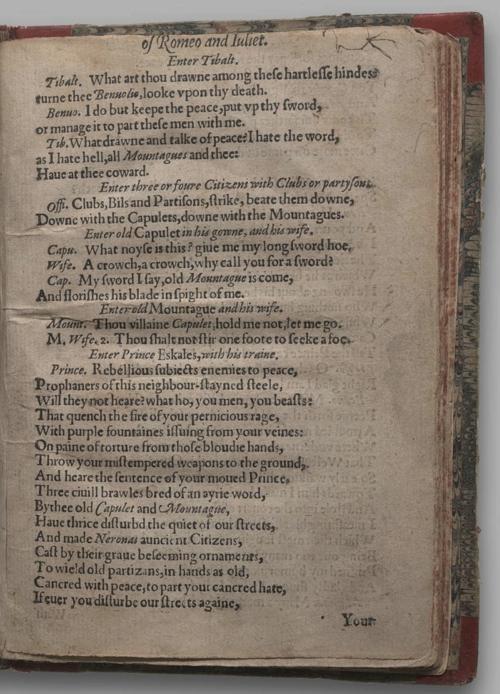 of Romeo and Iuliet.
Enter Tibalt.
Tibalt. What art thou drawne among these hartlesse hindes?
turne thee Benuolio, looke vpon thy death.
Benuo. I do but keepe the peace, put vp thy sword,
or manage it to part these men with me.
Tib. What drawne and talke of peace? I hate the word,
as I hate hell, all Mountagues and thee:
Haue at thee coward.
Enter three or foure Citizens with Clubs or partysons.
Offi. Clubs, Bils and Partisons, strike, beate them downe,
Downe with the Capulets, downe with the Mountagues.
Enter old Capulet in his gowne, and his wife.
Capu. What noyse is this? giue me my long sword hoe.
Wife. A crowch, a crowch, why call you for a sword?
Cap. My sword I say, old Mountague is come,
And florishes his blade in spight of me.
Enter old Mountague and his wife.
Mount. Thou villaine Capulet, hold me not, let me go.
M. Wife. 2. Thou shalt not stir one foote to seeke a foe.
Enter Prince Eskales, with his traine.
Prince. Rebellious subiects enemies to peace,
Prophaners of this neighbour-stayned steele,
Will they not heare? what ho, you men, you beasts:
That quench the fire of your pernicious rage,
With purple fountaines issuing from your veines:
On paine of torture from those bloudie hands,
Throw your mistempered weapons to the ground,
And heare the sentence of your moued Prince.
Three ciuill brawles bred of an ayrie word,
By thee old Capulet and Mountague,
Haue thrice disturbd the quiet of our streets,
And made Neronas auncient Citizens,
Cast by their graue beseeming ornaments,
To wield old partizans, in hands as old,
Cancred with peace, to part your cancred hate,
If euer you disturbe our streets againe,
Your